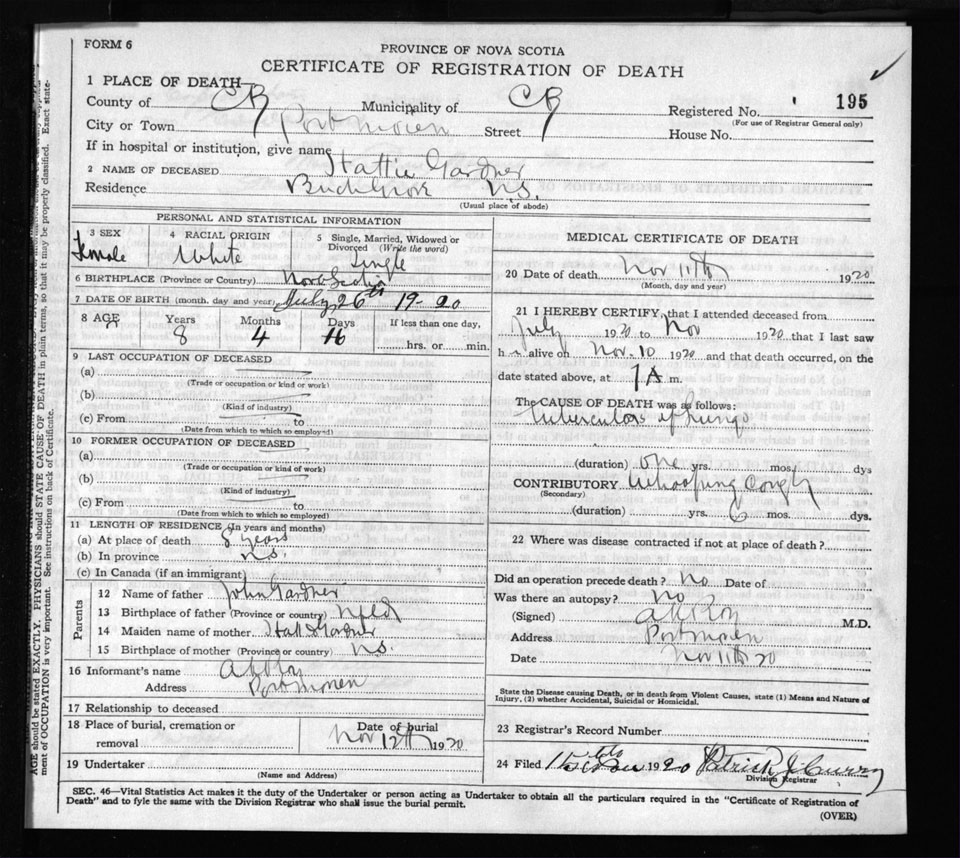 FORM 6
PROVINCE OF NOVA SCOTIA
CERTIFICATE OF REGISTRATION OF DEATH
1 PLACE OF DEATH
County of CB Municipality of CB Registered No. 195
(For use of Registrar General only)
City or Town Port Morien Street House No.
If in hospital or institution, give name
2 NAME OF DECEASED Hattie Gardner
Residence N.S.
(Usual place of abode)
PERSONAL AND STATISTICAL INFORMATION
3 SEX Female
4 RACIAL ORIGIN White
5 Single, Married, Widowed or Divorced (Write the word) Single
6 BIRTHPLACE (Province or Country) Nova Scotia
7 DATE OF BIRTH (month, day and year) July 26th 19-20
8 AGE Years 8 Months 4 Days 16 If less than one day, hrs. or min.
9 LAST OCCUPATION OF DECEASED
(a)
(Trade or occupation or kind or work)
(b)
(Kind of industry)
(c) From to
(Date from which to which so employed)
10 FORMER OCCUPATION OF DECEASED
(a)
(Trade or occupation or kind of work)
(b)
(Kind of industry)
(c) From to
(Date from which to which so employed)
11 LENGTH OF RESIDENCE (In years and months)
(a) At place of death 8 years
(b) In province N.S.
(c) In Canada (if an immigrant)
Parents
12 Name of father John Gardner
13 Birthplace of father (Province or country) Nfld
14 Maiden name of mother Gardner
15 Birthplace of mother (Province or country) N.S.
16 Informant's name
Address Port Morien
17 Relationship to deceased
18 Place of burial, cremation or removal
Date of burial Nov 12th 1920
19 Undertaker
(Name and Address)
MEDICAL CERTIFICATE OF DEATH
20 Date of death Nov 11th 1920
(Month, day and year)
21 I HEREBY CERTIFY, that I attended deceased from
July 1920 to Nov 1920 that I last saw
h alive on Nov. 10 1920 and that death occurred, on the
date stated above, at 7 A m.
The CAUSE OF DEATH was as follows:
Tuberculos of Lungs
(duration) one yrs. mos. dys
CONTRIBUTORY Whooping Cough
(Secondary)
(duration) yrs. 6 mos. dys.
22 Where was disease contracted if not at place of death?
Did an operation precede death? No Date of
Was there an autopsy? No
(Signed) M.D.
Address Port Morien
Date Nov 11th 20
State the Disease causing Death, or in death from Violent Causes, state (1) Means and Nature of
Injury, (2) whether Accidental, Suicidal or Homicidal.
23 Registrar's Record Number
24 Filed 1920 Patrick J Curry
Division Registrar
SEC. 46—Vital Statistics Act makes it the duty of the Undertaker or person acting as Undertaker to obtain all the particulars required in the "Certificate of Registration of
Death" and to fyle the same with the Division Registrar who shall issue the burial permit.
(OVER)
AGE should be stated EXACTLY. PHYSICIANS should STATE CAUSE OF DEATH in plain terms, so that it may be properly classified. Exact state-
ment of OCCUPATION is very important. See instructions on back of Certificate.